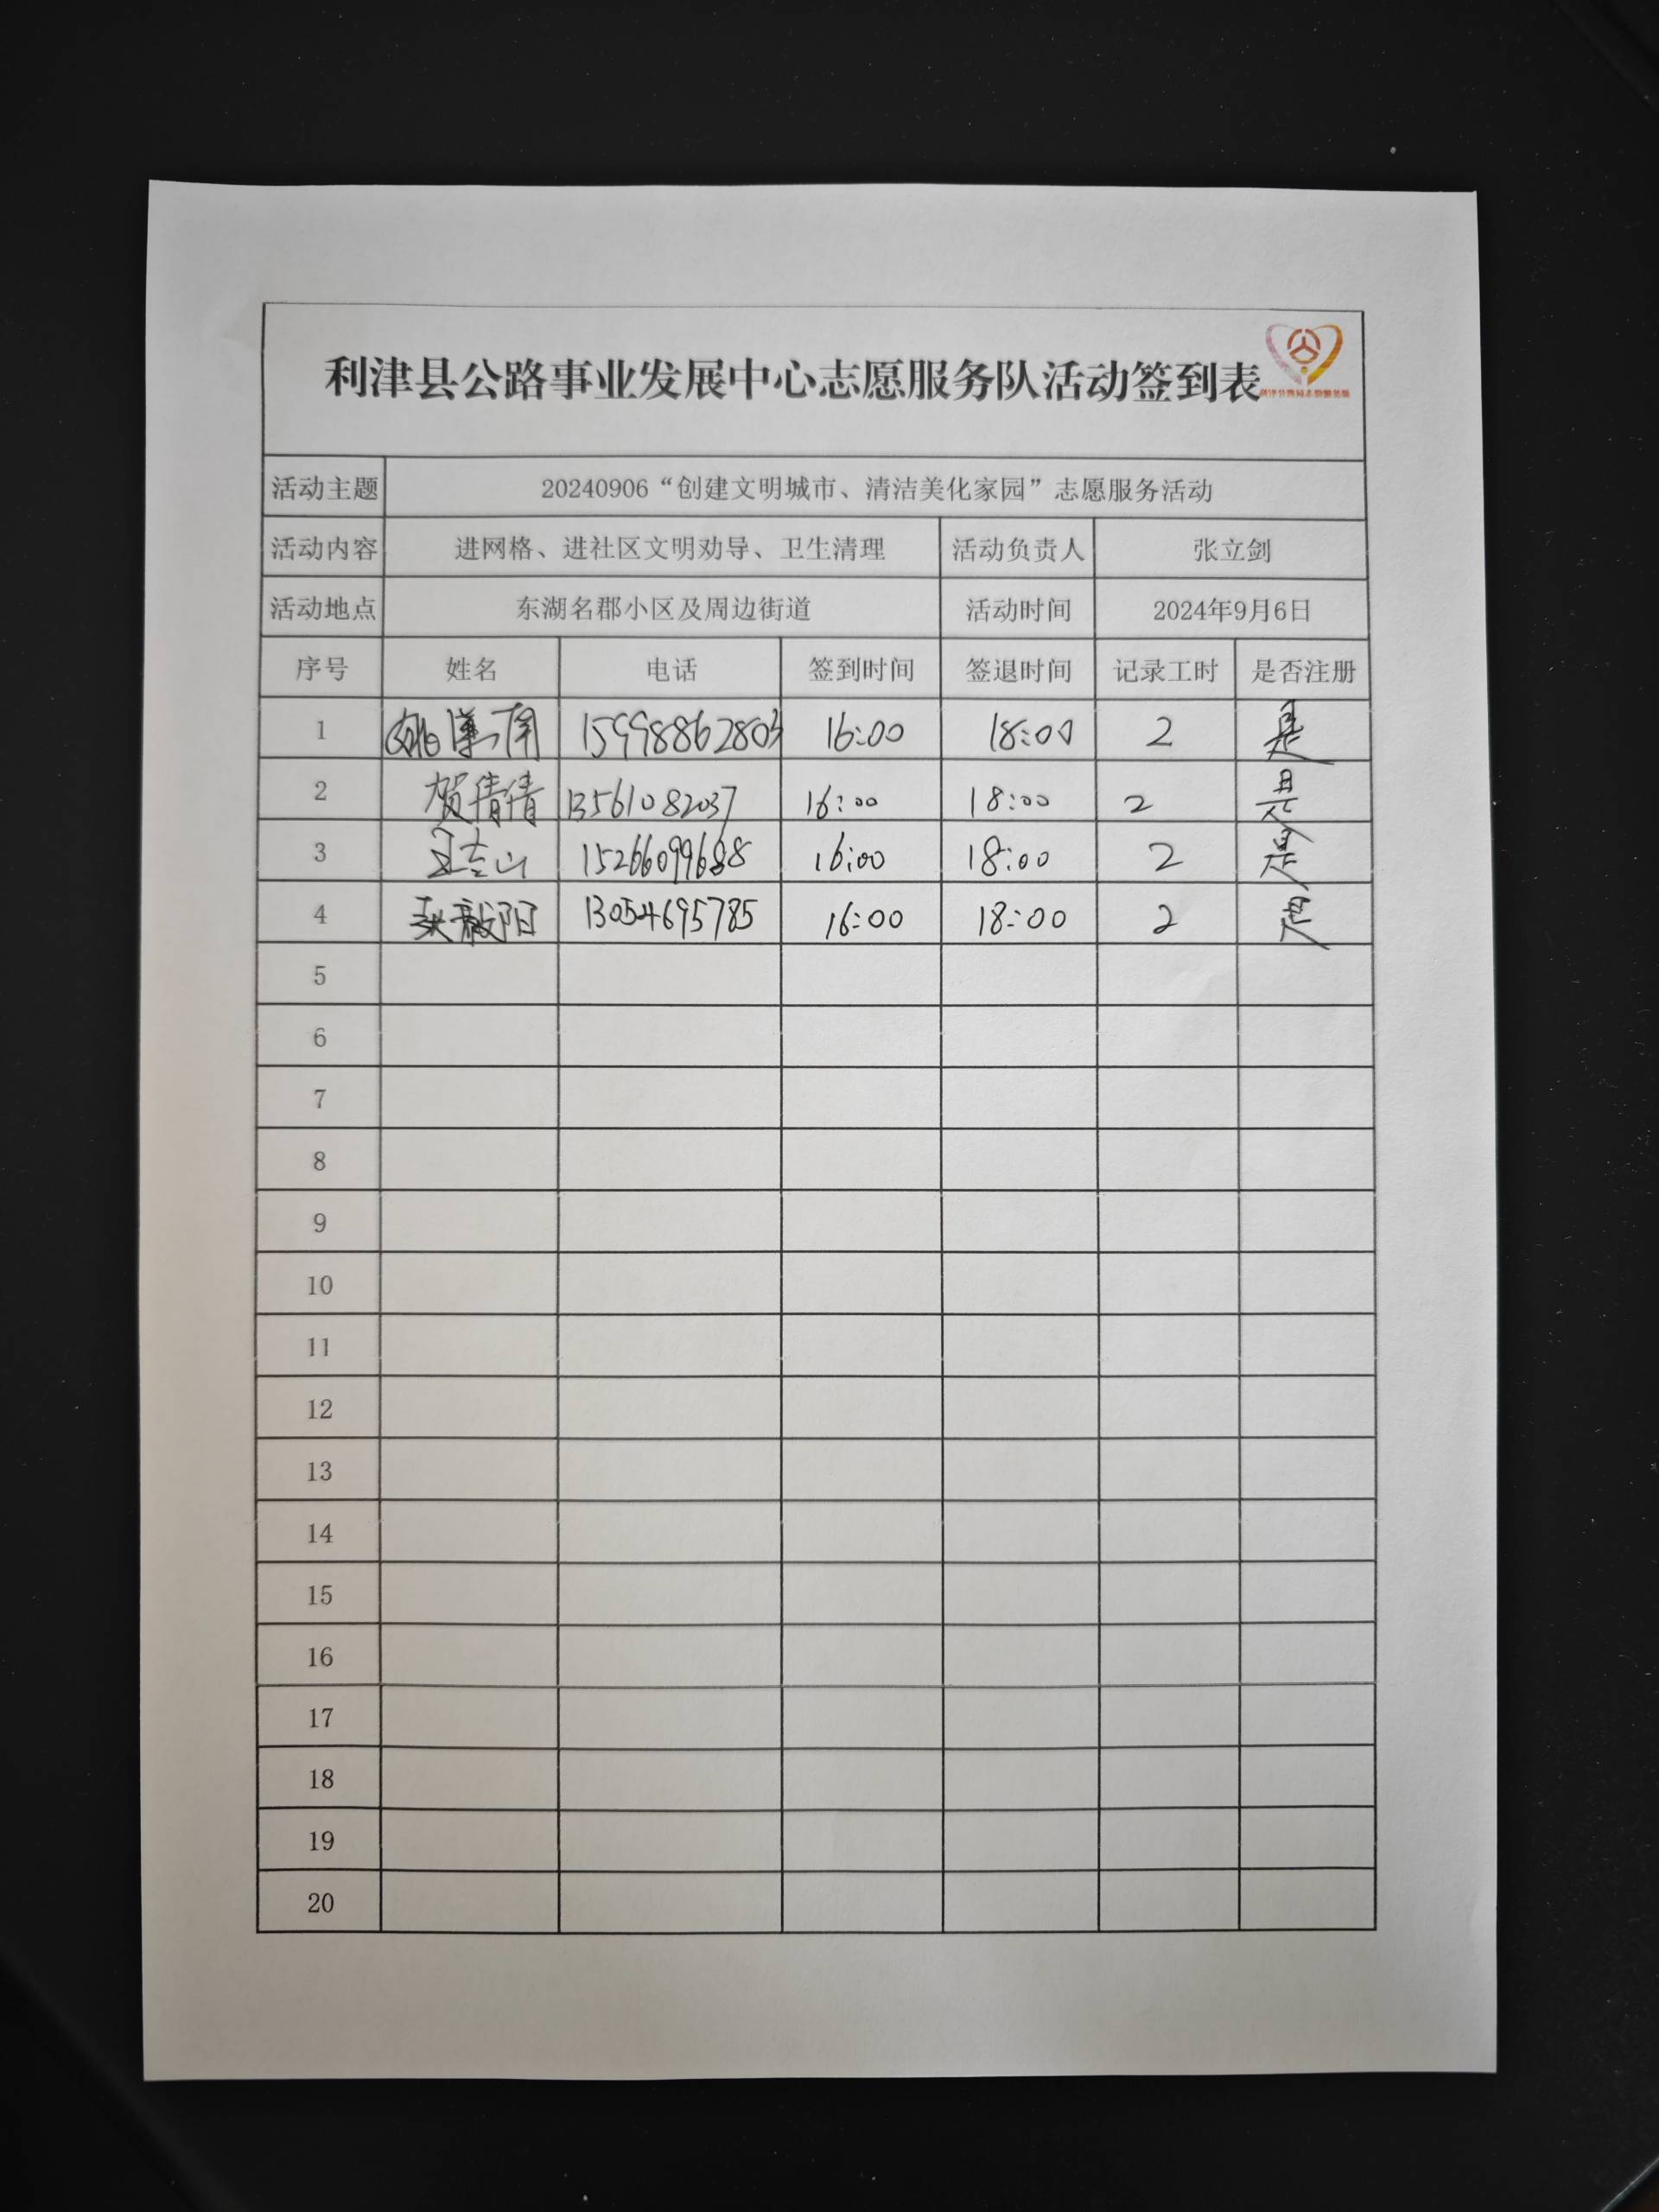 利津县公路事业发展中心志愿服务队活动签到表
活动主题 20240906“创建文明城市、清洁美化家园”志愿服务活动
活动内容 进网格、进社区文明劝导、卫生清理 活动负责人 张立剑
活动地点 东湖名郡小区及周边街道 活动时间 2024年9月6日
序号 姓名 电话 签到时间 签退时间 记录工时 是否注册
1 15998862803 16:00 18:00 2 是
2 贺倩倩 13561082037 16:00 18:00 2 是
3 15266099688 16:00 18:00 2 是
4 13054695785 16:00 18:00 2 是
5
6
7
8
9
10
11
12
13
14
15
16
17
18
19
20